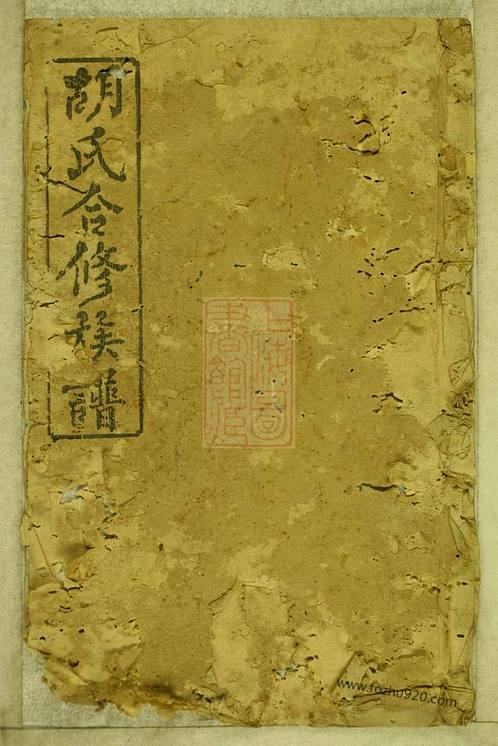 胡氏合修族譜
上海圖
書館藏
www.fozhu920.com